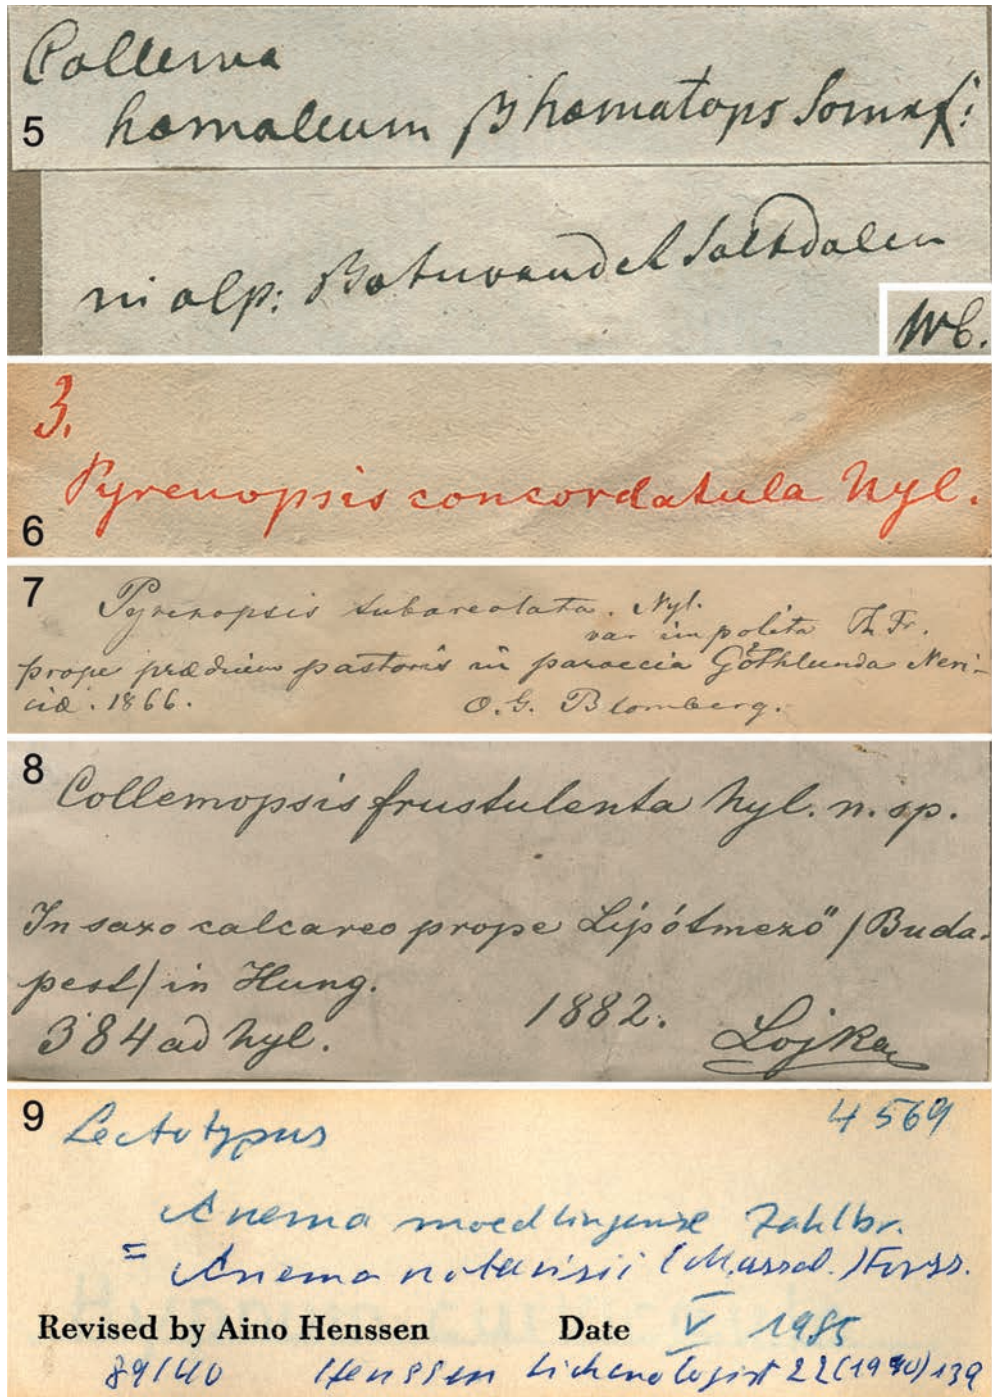 Collema
5 hæmaleum β hæmatops Sommf:
in alp: Botnvandet Saltdalen
Wb.
3.
6 Pyrenopsis concordatula Nyl.
7 Pyrenopsis subareolata. Nyl.
var impolita Th Fr.
prope prædium pastoris in paroecia Göthlunda Neri-
ciæ. 1866. O. G. Blomberg.
8 Collemopsis frustulenta Nyl. n. sp.
In saxo calcareo prope Lipótmező /Buda-
pest/ in Hung.
384 ad Nyl. 1882. Lojka
9 Lectotypus 4569
Anema moedlingense Zahlbr.
= Anema notarisii (Massal.) Forss.
Revised by Aino Henssen Date V 1985
89/40 Henssen Lichenologist 22(1990)139